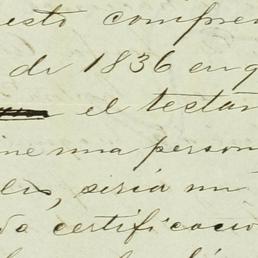 esto compren
de 1836 en q
el testa
ne una person
seria un
da certificacio